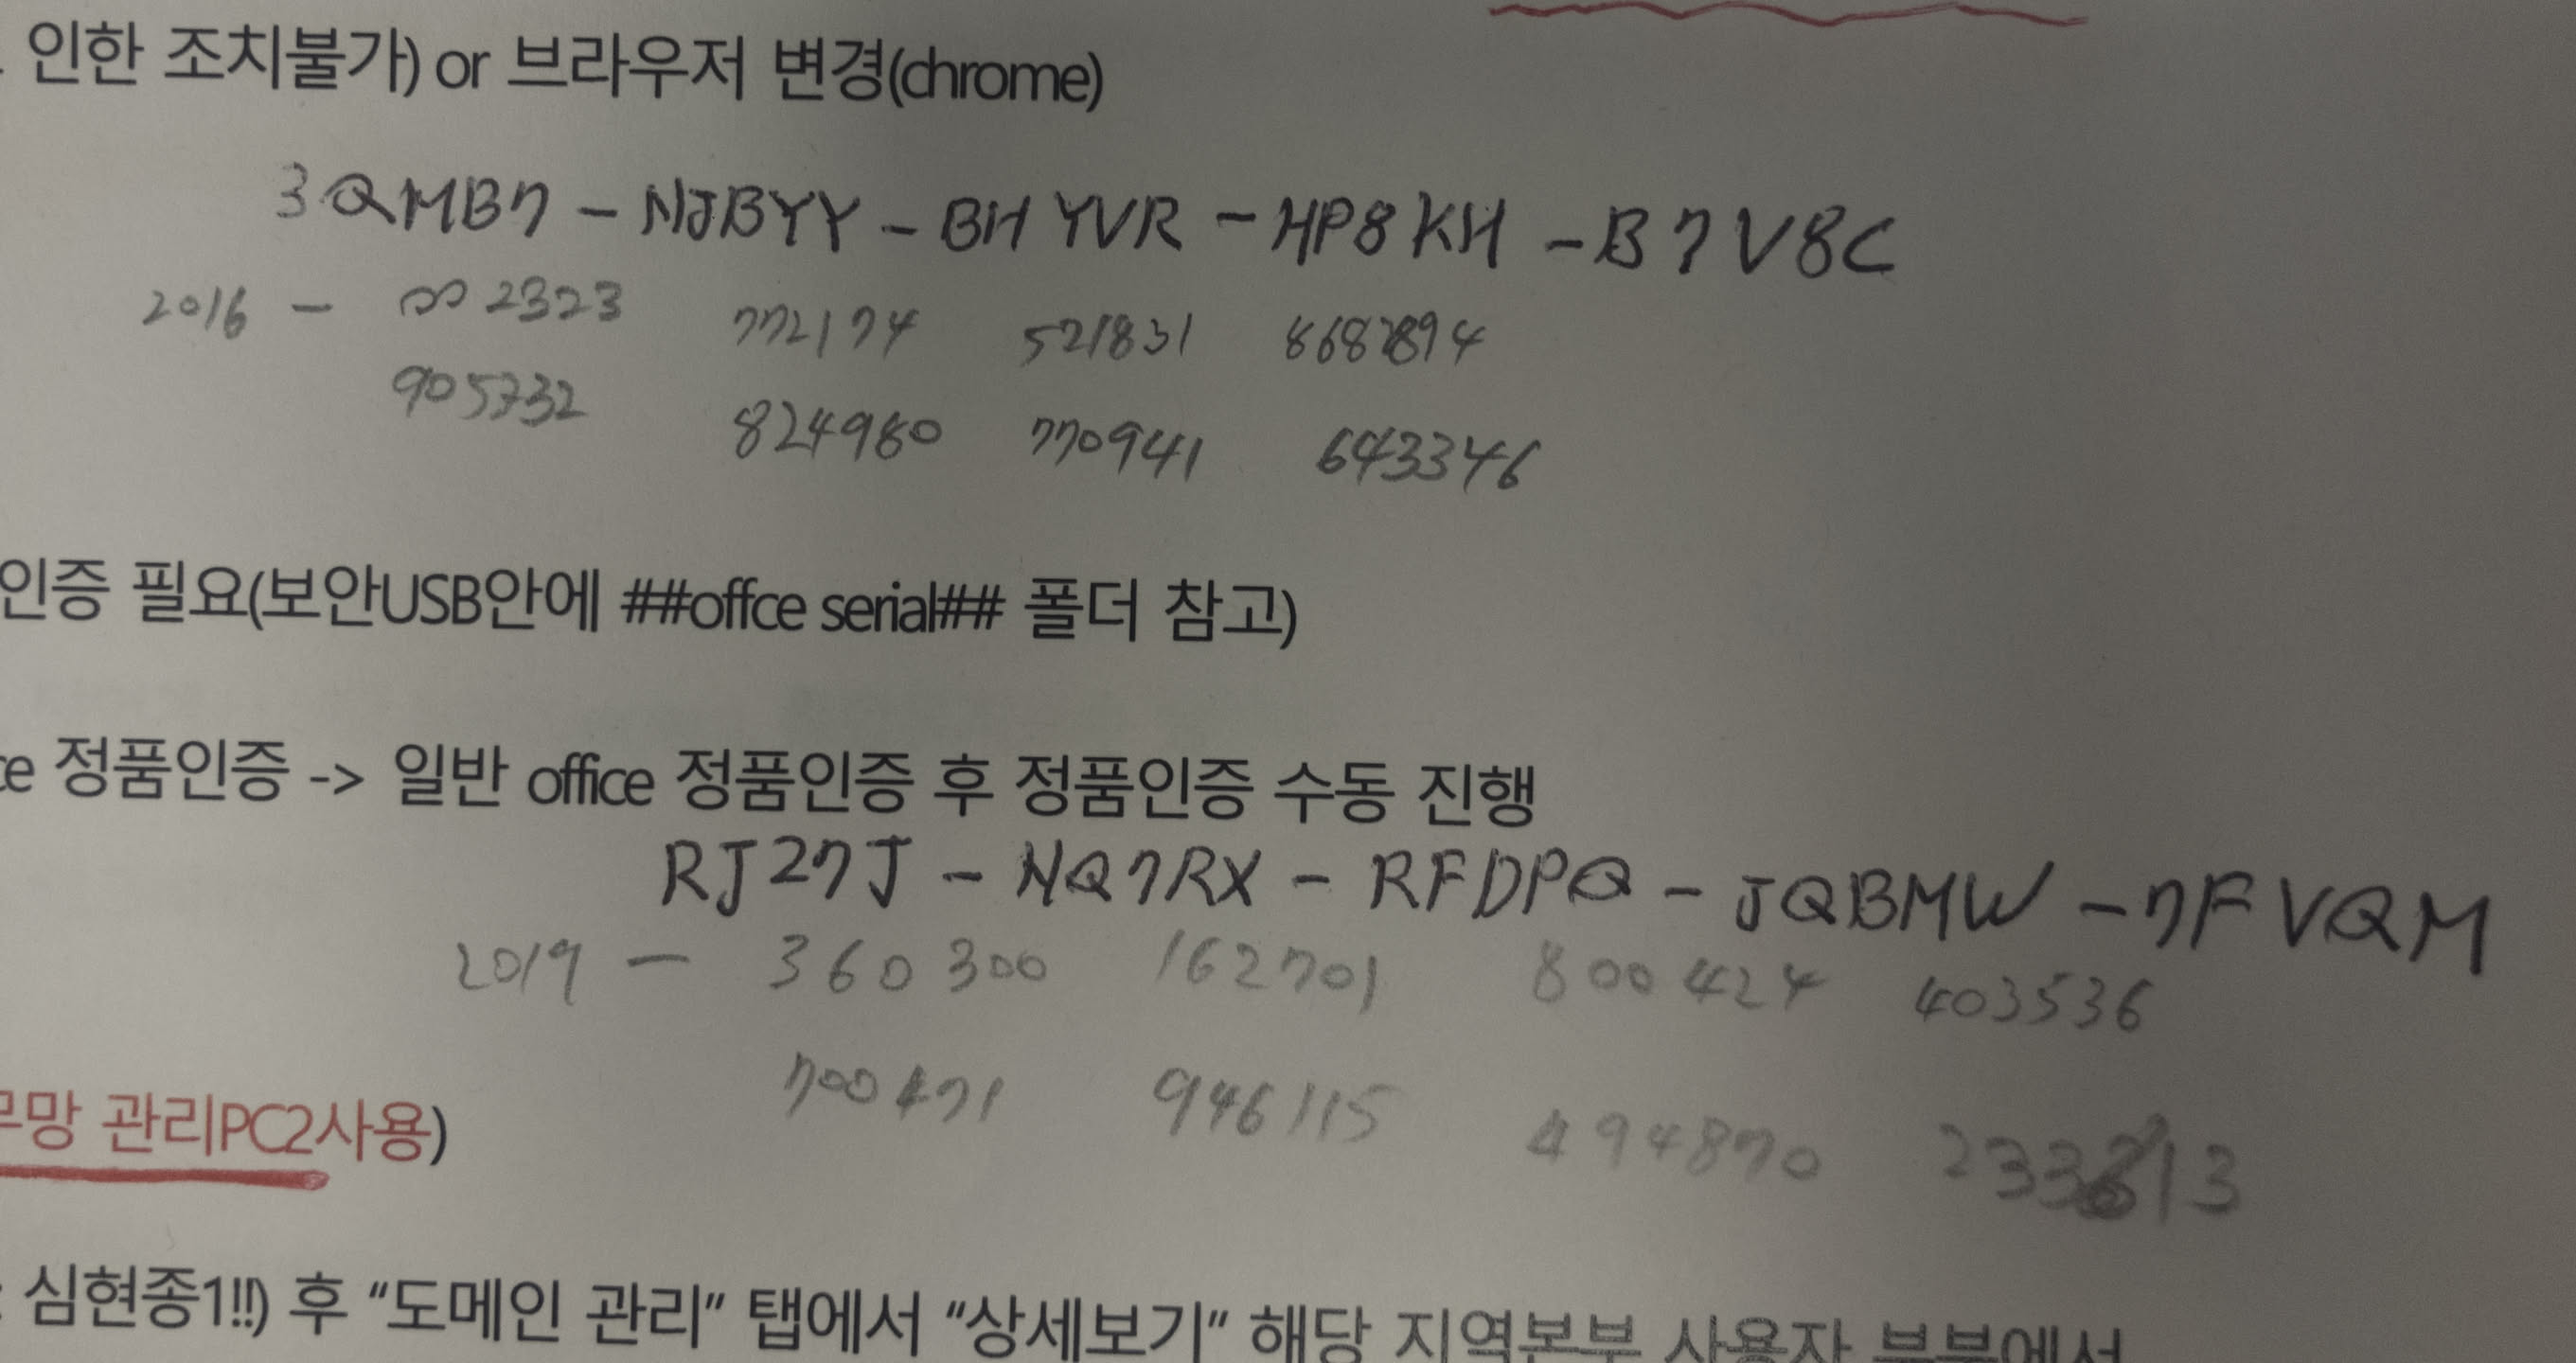 인한 조치불가) or 브라우저 변경(chrome)
3QMB7 - NJBYY - BHYVR - HP8KH - B7V8C
2016 - 002323 772174 521831
905732 824980 770941 643346
인증 필요(보안USB안에 ##offce serial## 폴더 참고)
ce 정품인증 -> 일반 office 정품인증 후 정품인증 수동 진행
RJ27J - NQ7RX - RFDPQ - JQBMW - 7FVQM
2019 - 360300 162701 800424 403536
700471 946115 494870
관리PC2사용)
: 심현종1!!) 후 “도메인 관리” 탭에서 “상세보기” 해당 지역본부 사용자